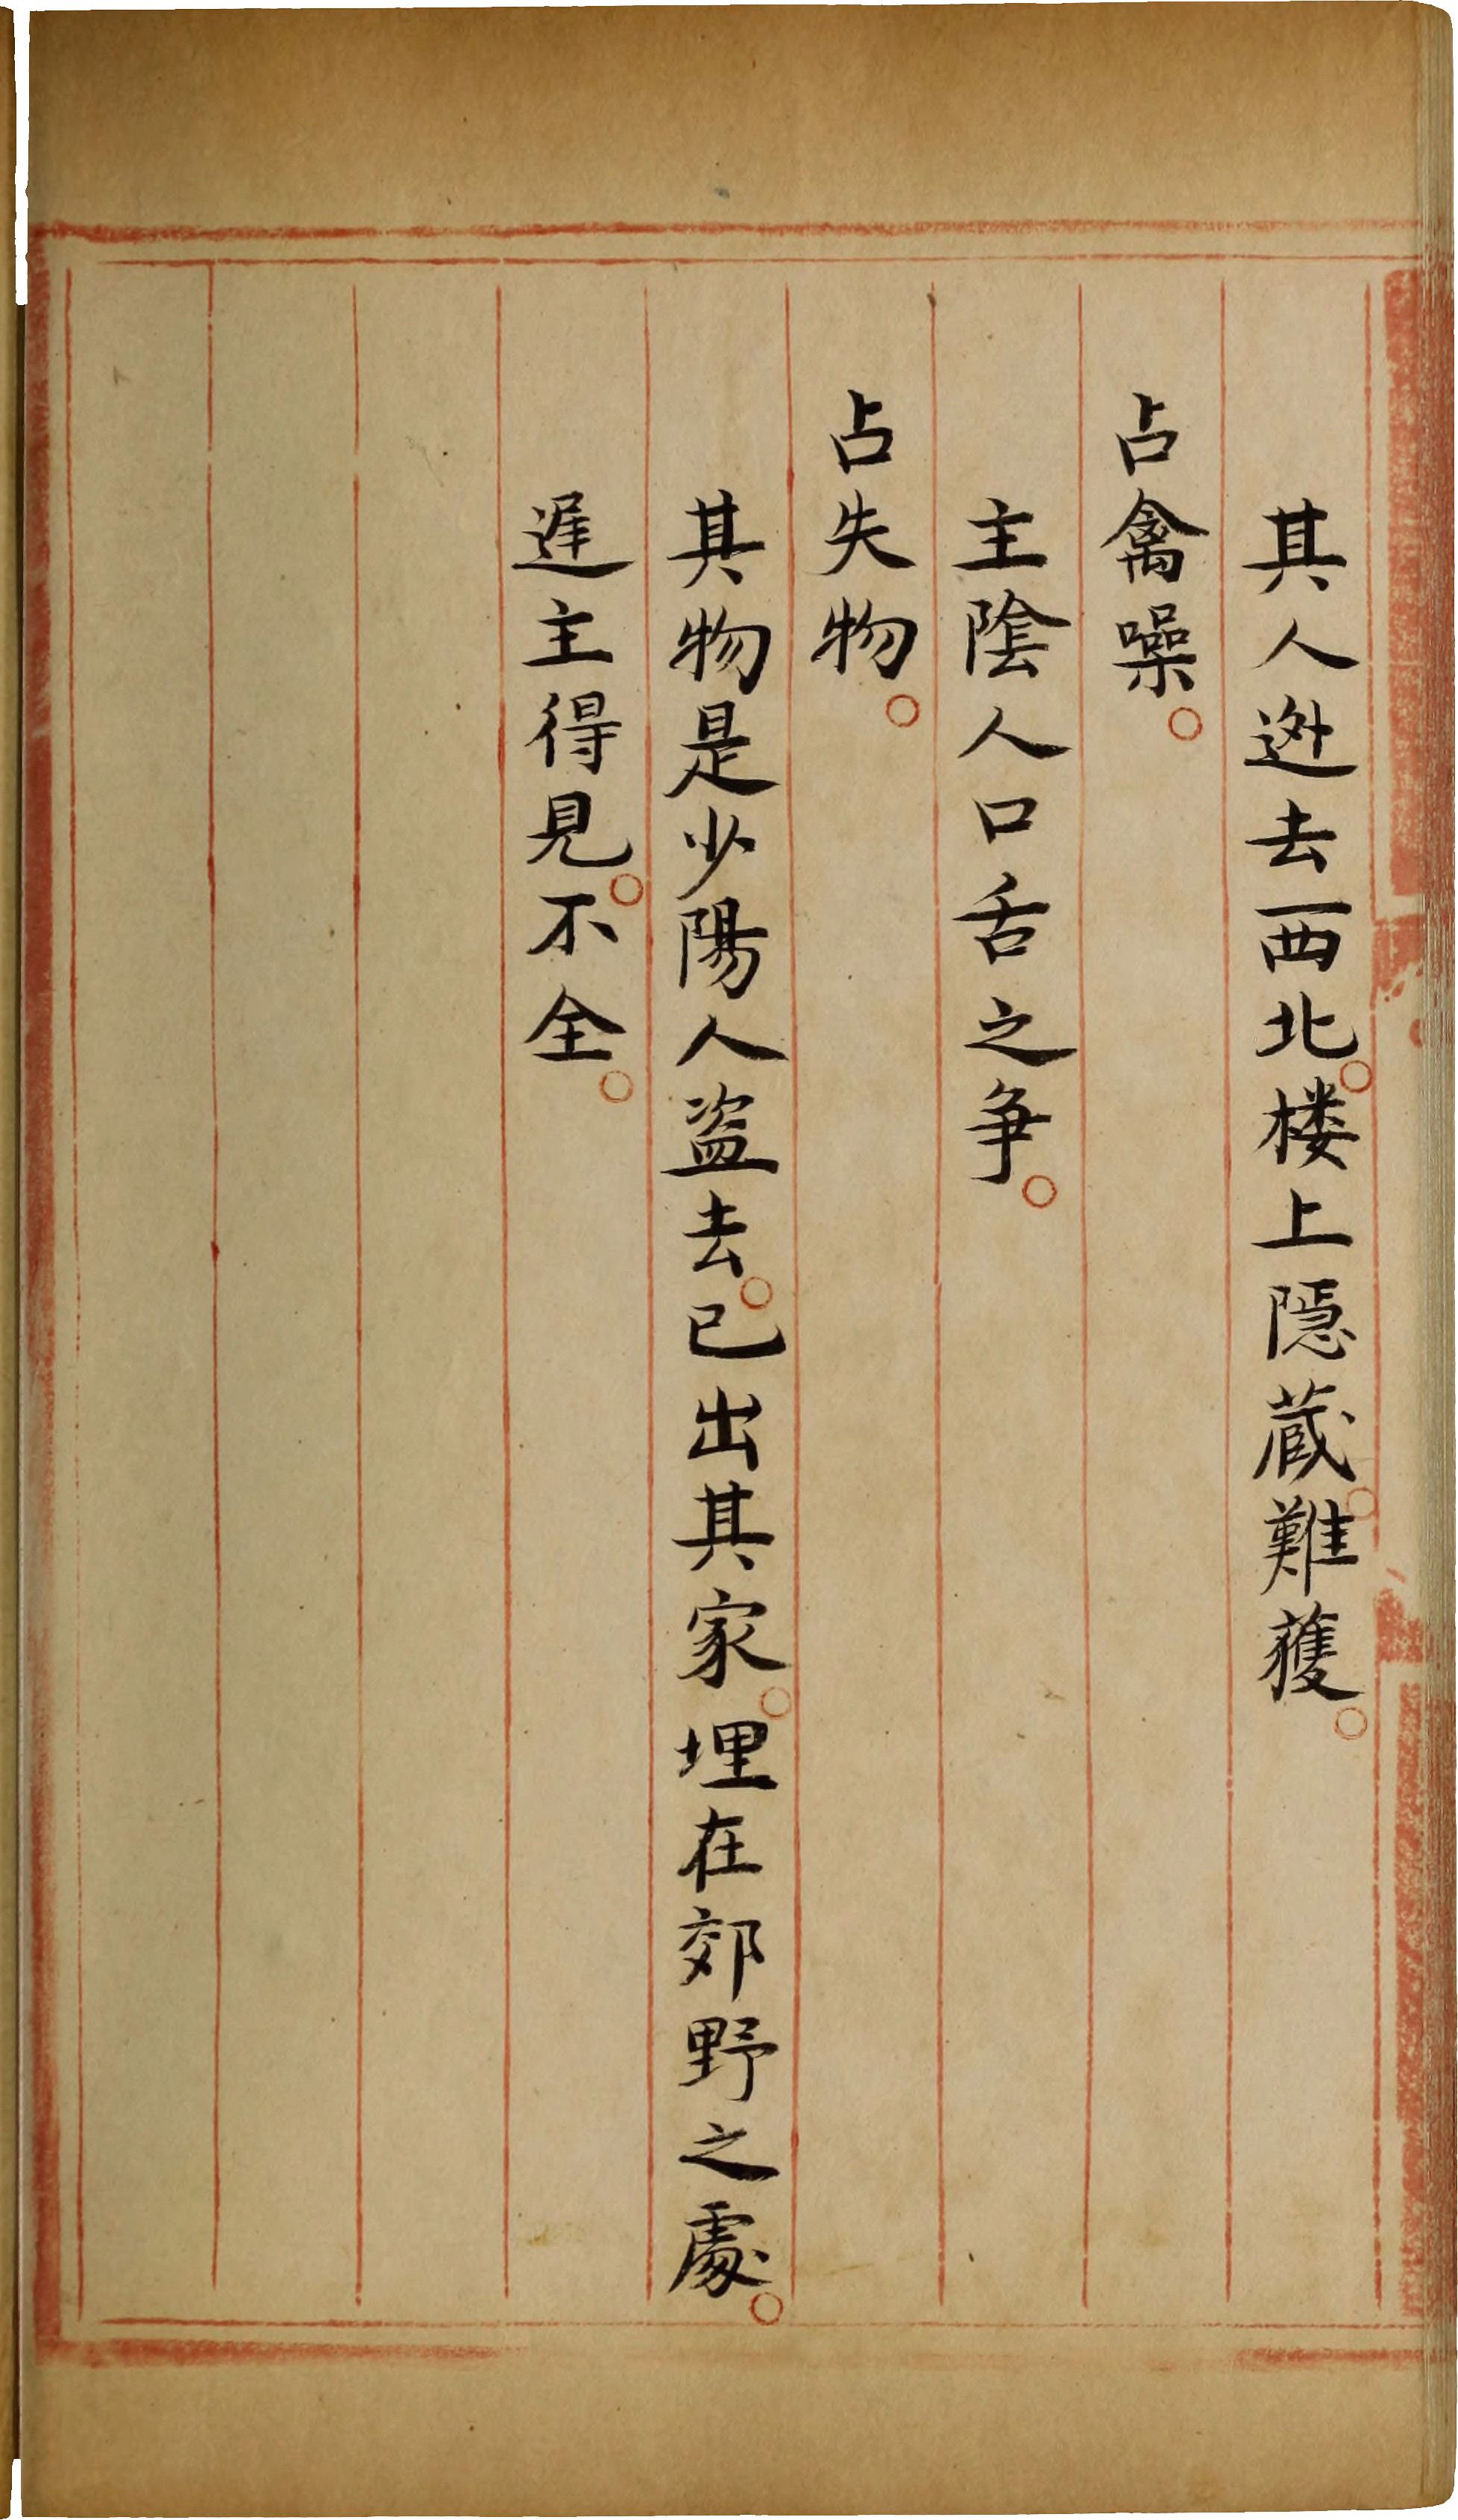 其人迯去西北。楼上隱蔵。難獲。
占禽噪。
主陰人口舌之争。
占失物。
其物是少陽人盗去。已出其家。埋在郊野之處。
遅主得見。不全。